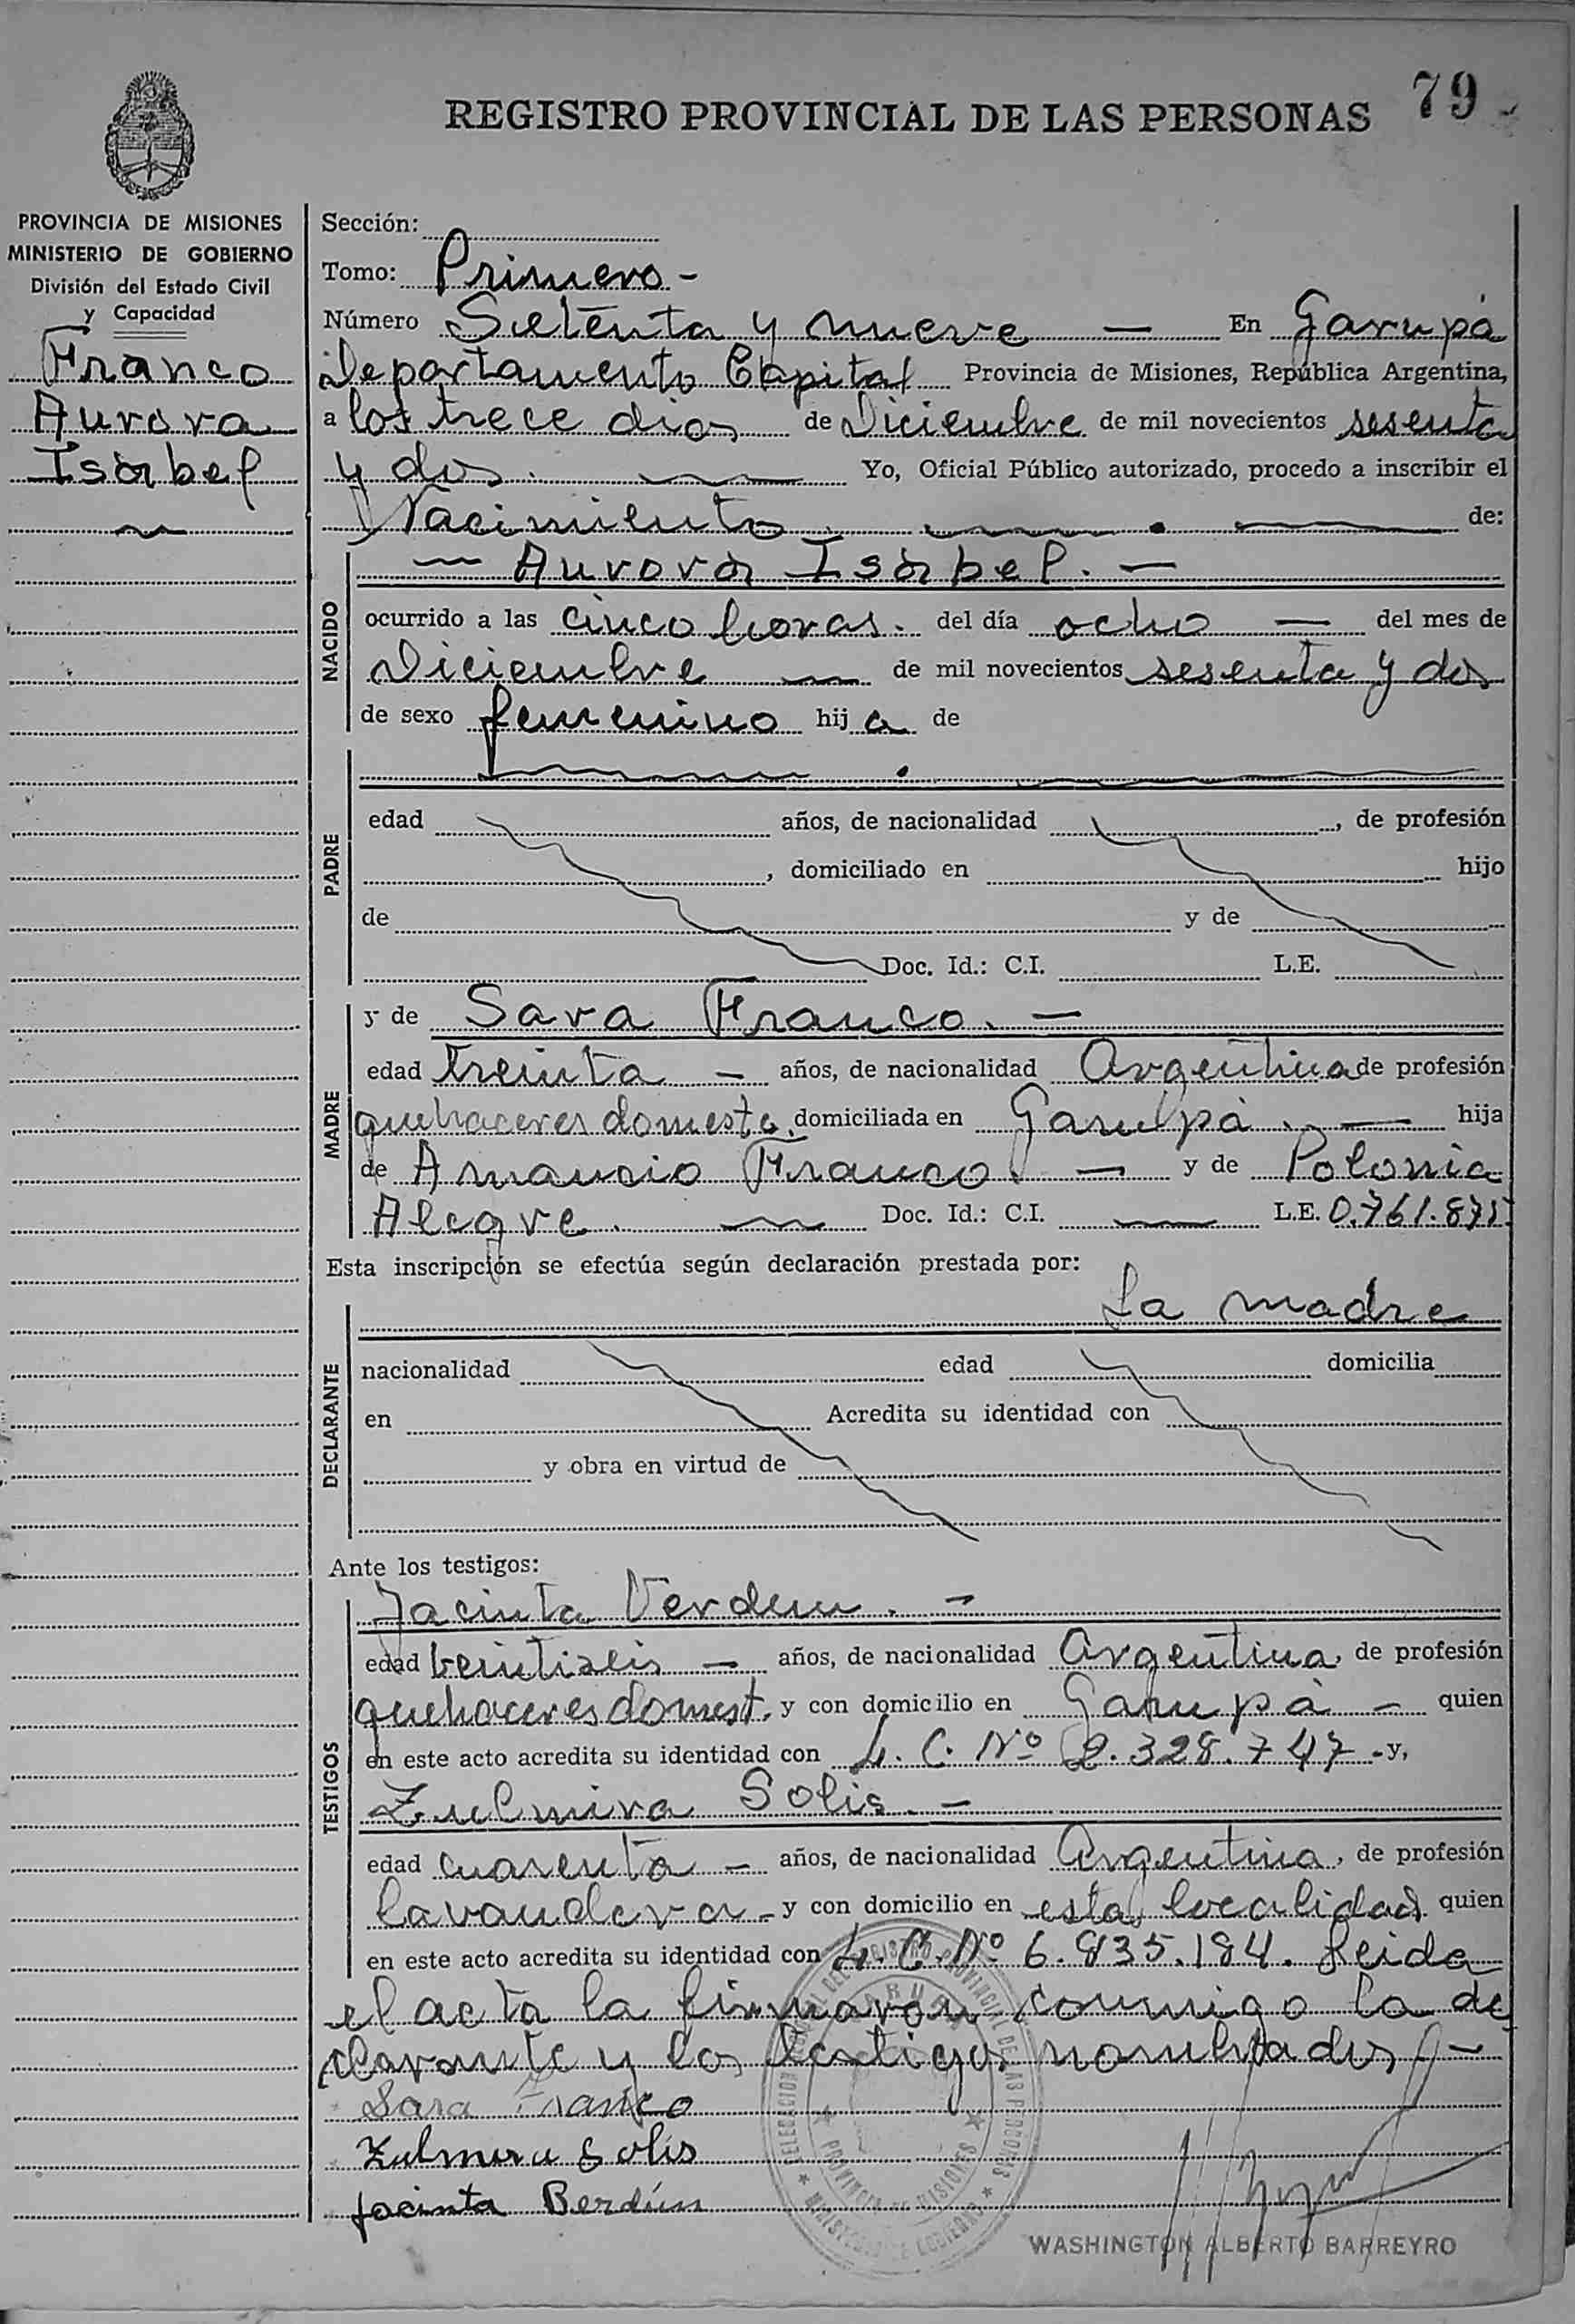 79
REGISTRO PROVINCIAL DE LAS PERSONAS
PROVINCIA DE MISIONES
MINISTERIO DE GOBIERNO
División del Estado Civil
y Capacidad
Franco
Aurora
Isabel
Sección:
Tomo: Primero -
Número Setenta y nueve — En Garupá
Departamento Capital Provincia de Misiones, República Argentina,
a los trece dias de Diciembre de mil novecientos sesenta
y dos. Yo, Oficial Público autorizado, procedo a inscribir el
Nacimiento de:
NACIDO
— Aurora Isabel. —
ocurrido a las cinco horas. del día ocho — del mes de
Diciembre — de mil novecientos sesenta y dos
de sexo femenino hija de
PADRE
edad años, de nacionalidad , de profesión
, domiciliado en hijo
de y de
Doc. Id.: C.I. L.E.
MADRE
y de Sara Franco. —
edad treinta — años, de nacionalidad Argentina de profesión
quehaceres domest. domiciliada en Garupá. — hija
de Amancio Franco. — y de Polonia
Alegre. — Doc. Id.: C.I. — L.E. 0.761.875
Esta inscripción se efectúa según declaración prestada por:
La madre
DECLARANTE
nacionalidad edad domicilia
en Acredita su identidad con
y obra en virtud de
Ante los testigos:
TESTIGOS
Jacinta Verdun. —
edad veintiseis — años, de nacionalidad Argentina, de profesión
quehaceres domest. y con domicilio en Garupá — quien
en este acto acredita su identidad con L. C. Nº 2.328.747 - y,
Zulmira Solis. —
edad cuarenta — años, de nacionalidad Argentina, de profesión
lavandera - y con domicilio en esta localidad quien
en este acto acredita su identidad con L. C. Nº 6.835.184. Leida
el acta la firmaron conmigo la de
clarante y los testigos nombrados —
Sara Franco
Zulmira Solis
Jacinta Berdún
DELEGACION DEL REGISTRO PROVINCIAL DE LAS PERSONAS
GARUPA
PROVINCIA DE MISIONES
MINISTERIO DE GOBIERNO
WASHINGTON ALBERTO BARREYRO